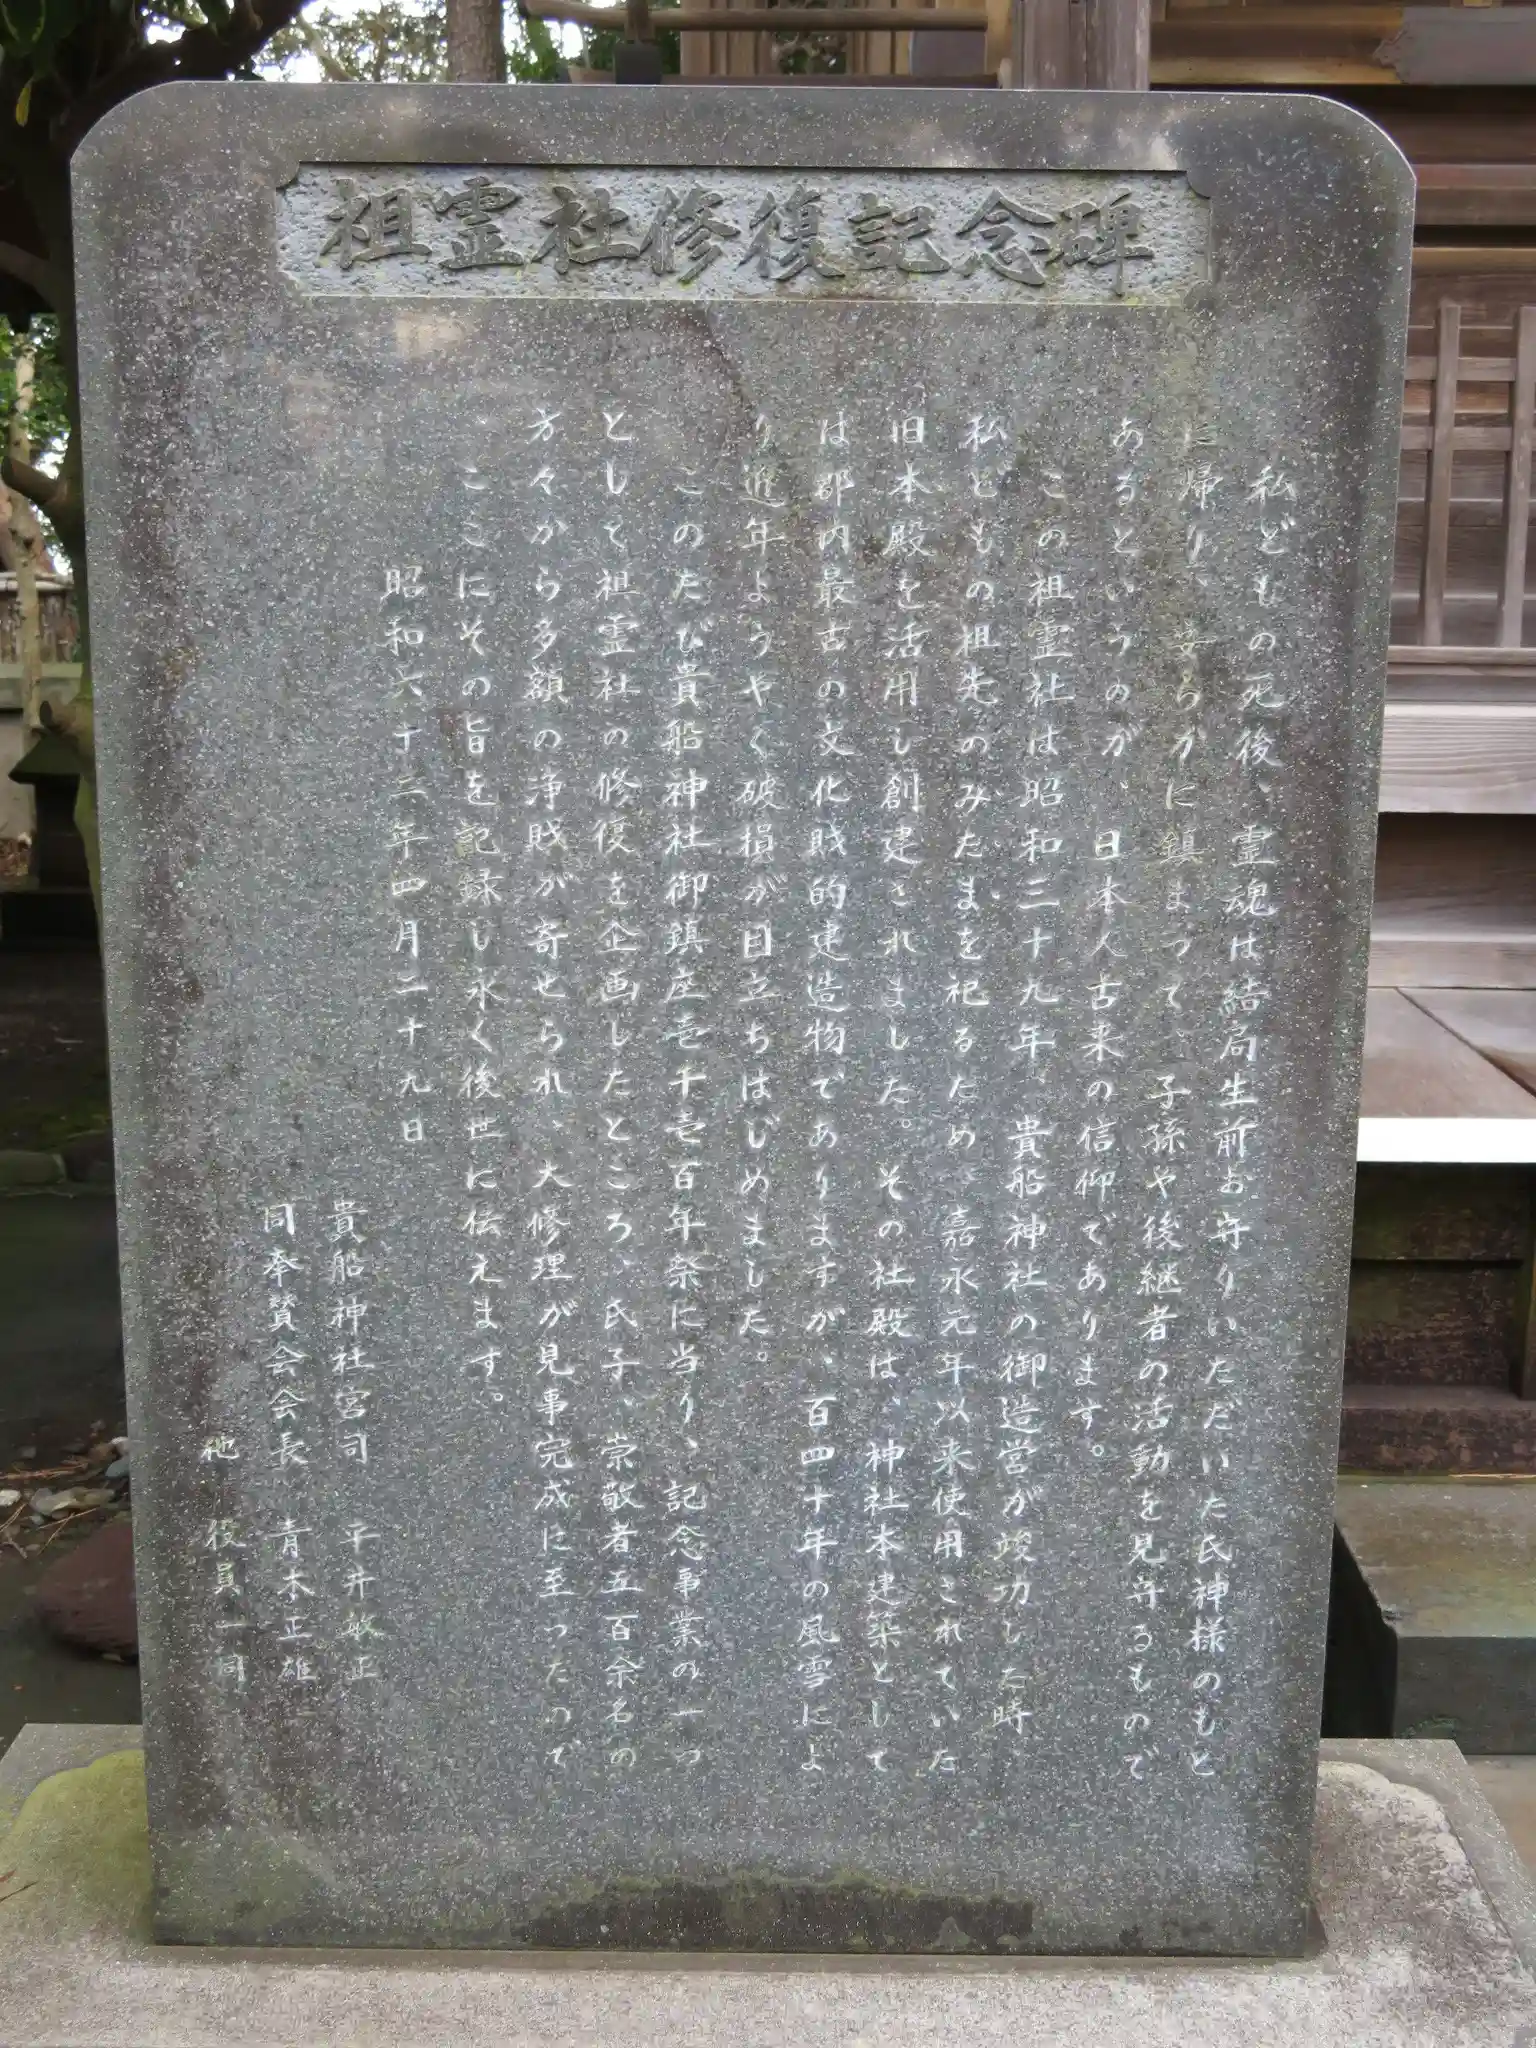 祖霊社修復記念碑
私どもの死後、霊魂は結局生前お守りいただいた氏神様のもと
に帰り、安らかに鎮まって、子孫や後継者の活動を見守るもので
あるというのが、日本人古来の信仰であります。
この祖霊社は昭和三十九年、貴船神社の御造営が竣功した時、
私どもの祖先のみたまを祀るため、嘉永元年以来使用されていた
旧本殿を活用し創建されました。その社殿は、神社本建築として
は郡内最古の文化財的建造物でありますが、百四十年の風雪によ
り近年ようやく破損が目立ちはじめました。
このたび貴船神社御鎮座壱千壱百年祭に当り、記念事業の一つ
として祖霊社の修復を企画したところ、氏子、崇敬者五百余名の
方々から多額の浄財が寄せられ、大修理が見事完成に至ったので
、ここにその旨を記録し永く後世に伝えます。
昭和六十三年四月二十九日
貴船神社宮司 平井敏正
同奉賛会会長 青木正雄
他 役員一同